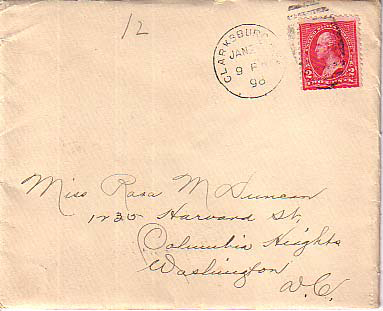 12
CLARKSBURG
JAN 2
9 P
98
2 2
TWO CENTS
Miss Rosa M Duncan
1235 Harvard St,
Columbia Heights
Washington
D.C.